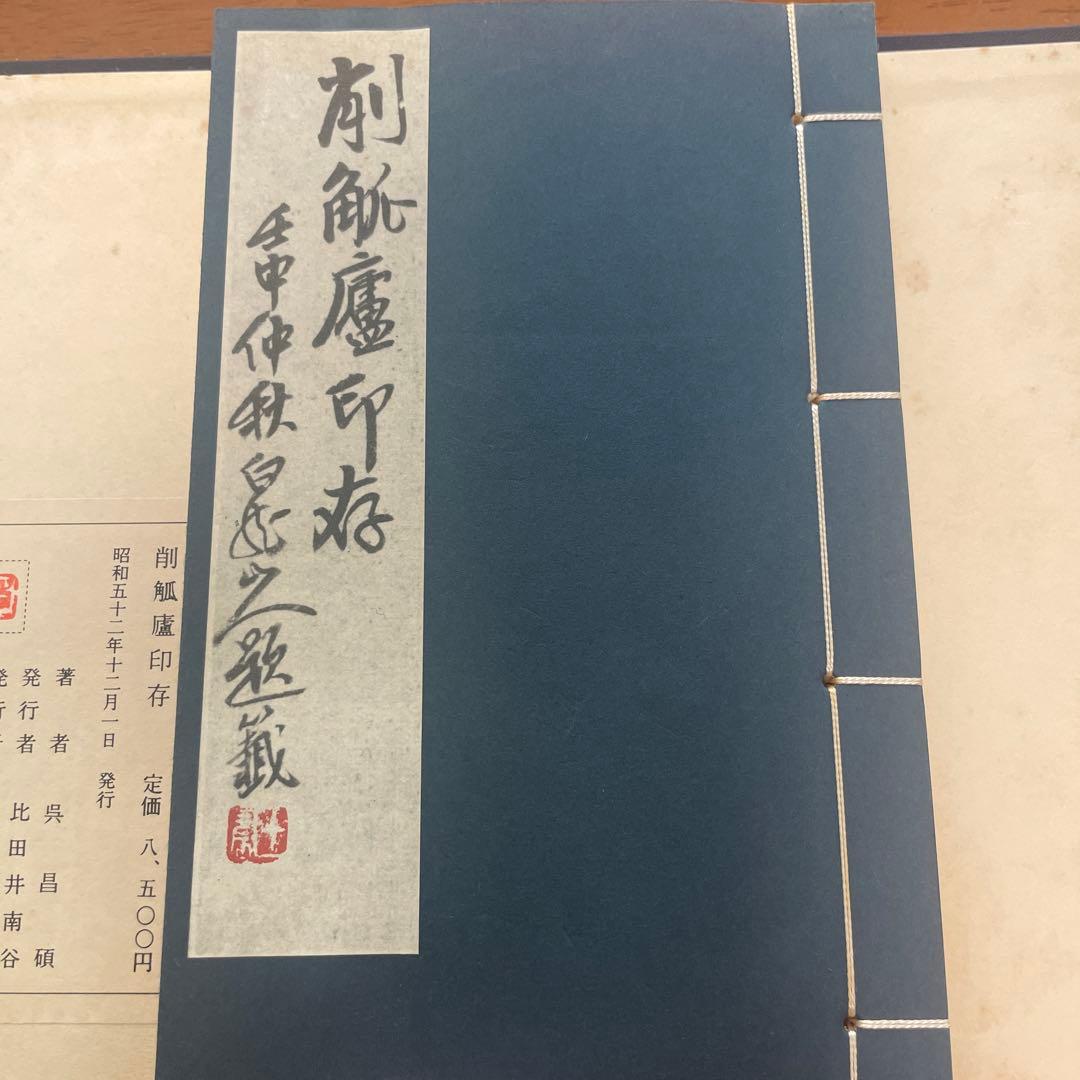 削觚廬印存
壬申仲秋白龍山人題籤
削觚廬印存 定価 八、五〇〇円
昭和五十二年十二月一日 発行
著者 呉昌碩
発行者 比田井南谷